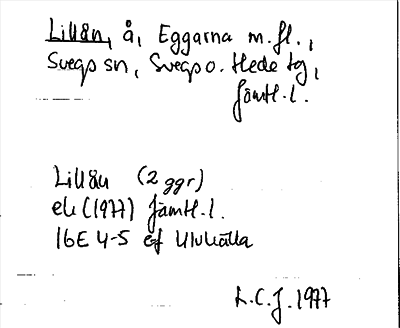 Lillån, å, Eggarna m.fl.,
Svegs sn, Svegs o. Hede tg,
Jämtl. l.
Lillån (2 ggr)
ek (1977) Jämtl. l.
16E 4-5 ef Ulvkälla
L.C.J. 1977